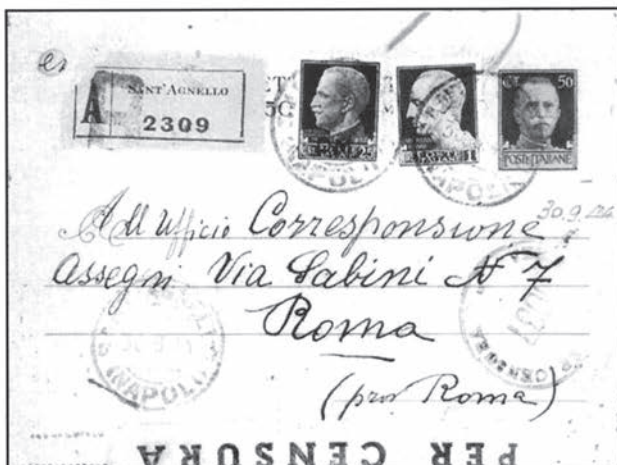 A
SANT'AGNELLO
2309
50
POSTE ITALIANE
30.9.
All Ufficio Corresponsione
Assegni Via Sabini N 7
Roma
(prov Roma)
NAPOLI
PER CENSURA